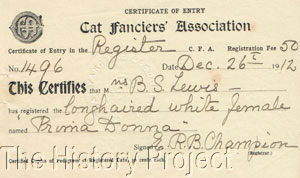 CERTIFICATE OF ENTRY
Cat Fanciers' Association
Certificate of Entry in the Register C. F. A. Registration Fee 50
No. 1496 Date Dec. 26 1912
This Certifies that Mrs B. S. Lewis
has registered the longhaired white female
named "Prima Donna"
Signed E. R. B. Champion
(Registrar.)
Certified Copies of Pedigrees of Registered Cats,
The History Project